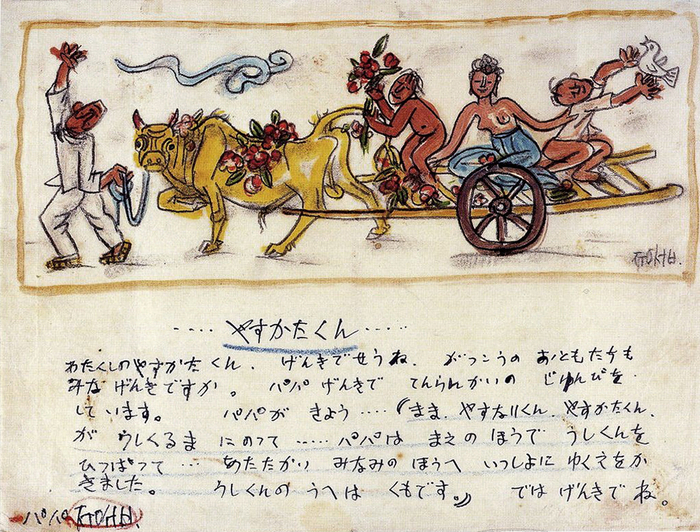 ㅈㅜㅇㅅㅓㅂ.
‥‥ やすかたくん ‥‥
わたくしのやすかたくん、げんきでせうね、がつこうの おともたちも
みな げんきですか。パパ げんきで てんらんかいの じゆんびを
しています。 パパが きよう‥‥(まま、やすなりくん、やすかたくん、
が うしくるま にのつて ‥‥パパは まえの ほうで うしくんを
ひつぱつて … あたたかい みなみのほうへ いつしよに ゆくえをか
きました。 うしくんの うへは くもです。) では げんきで ね。
パパ ㅈㅜㅇㅅㅓㅂ.